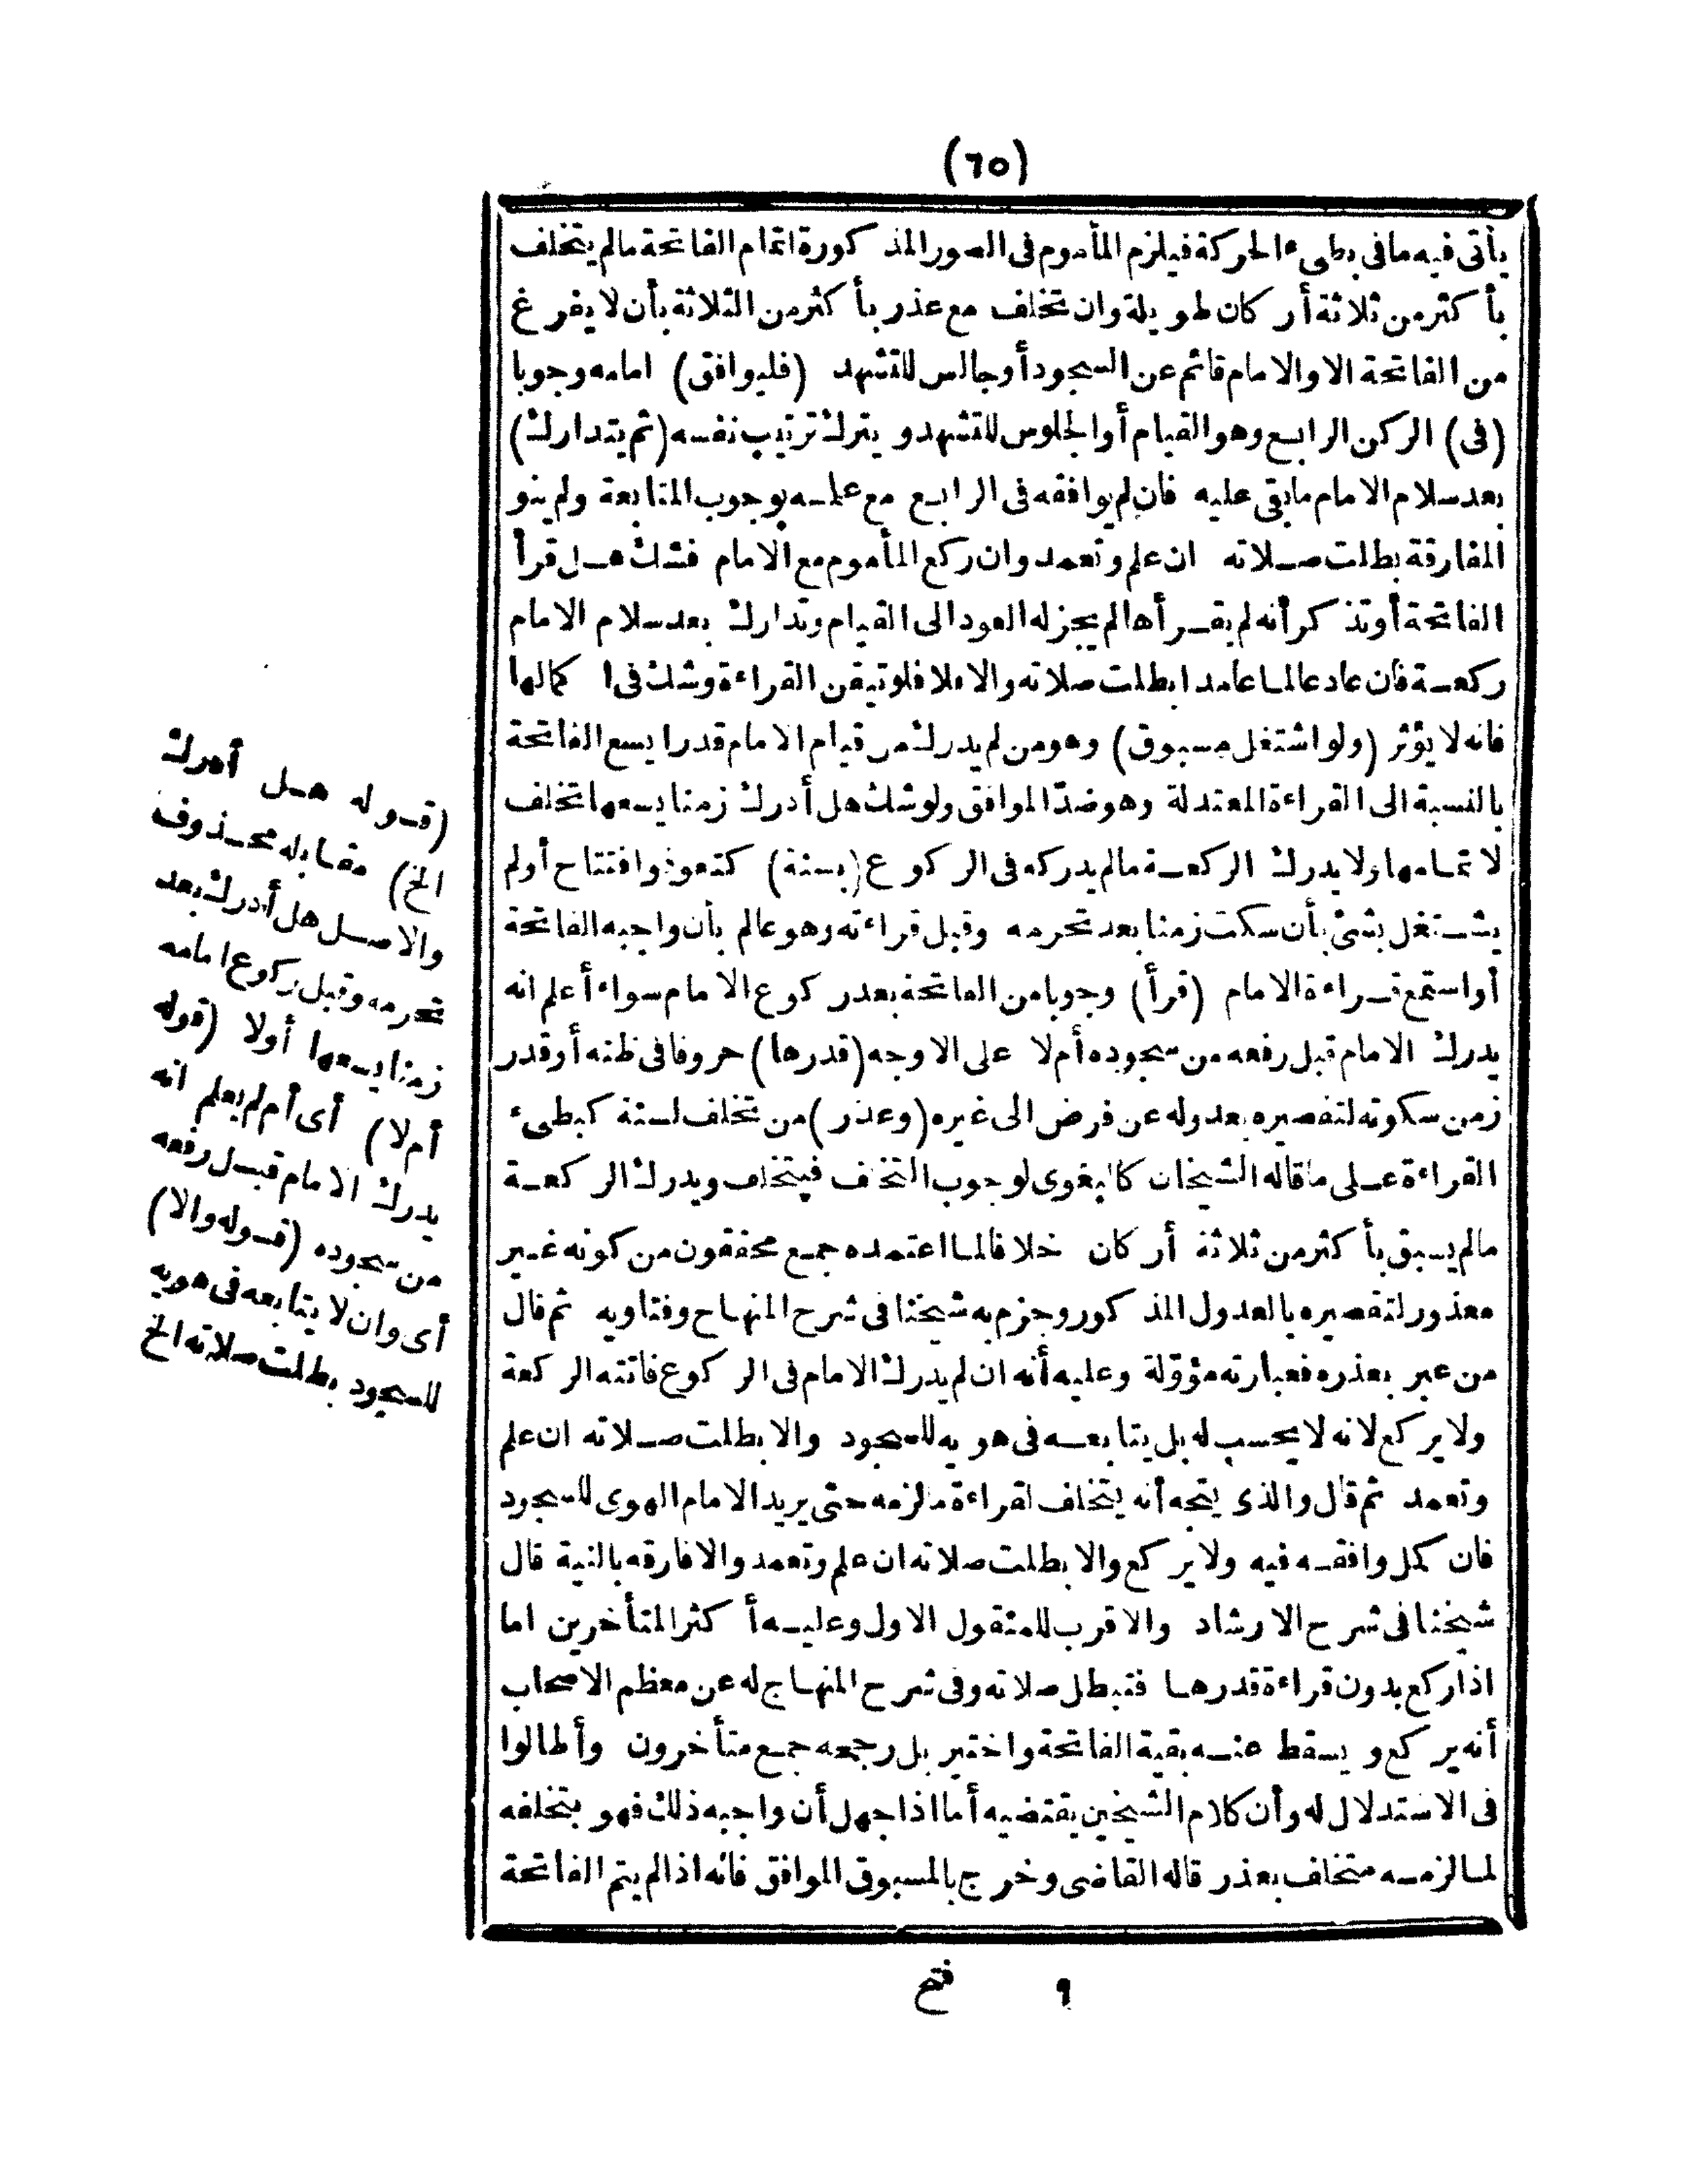 (٦٥)
يأتى فيه ما فى بطىء الحركة فيلزم المأموم فى الصور المذكورة اتمام الفاتحة مالم يتخلف
بأكثر من ثلاثة أركان طويلة وان تخلف مع عذر بأكثر من الثلاثة بأن لا يفرغ
من الفاتحة الا والامام قائم عن السجود أو جالس للتشهد (فليوافق) امامه وجوبا
(فى) الركن الرابع وهو القيام أو الجلوس للتشهد ويترك ترتيب نفسه (ثم يتدارك)
بعد سلام الامام ما بقى عليه فان لم يوافقه فى الرابع مع علمه بوجوب المتابعة ولم ينو
المفارقة بطلت صلاته ان علم وتعمد وان ركع المأموم مع الامام فشك هل قرأ
الفاتحة أو تذكر أنه لم يقرأها لم يجز له العود الى القيام وتدارك بعد سلام الامام
ركعة فان عاد عالما عامدا بطلت صلاته والا فلا فلو تيقن القراءة وشك فى اكمالها
فانه لا يؤثر (ولو اشتغل مسبوق) وهو من لم يدرك من قيام الامام قدرا يسع الفاتحة
بالنسبة الى القراءة المعتدلة وهو ضدّ الموافق ولو شك هل أدرك زمنا يسعها تخلف
لاتمامها ولا يدرك الركعة مالم يدركه فى الركوع (بسنة) كتعوذ وافتتاح أو لم
يشتغل بشئ بأن سكت زمنا بعد تحرمه وقبل قراءته وهو عالم بأن واجبه الفاتحة
أو استمع قراءة الامام (قرأ) وجوبا من الفاتحة بعد ركوع الامام سواء أعلم انه
يدرك الامام قبل رفعه من سجوده أم لا على الاوجه (قدرها) حروفا فى ظنه أو قدر
زمن سكوته لتقصيره بعدوله عن فرض الى غيره (وعذر) من تخلف لسنة كبطىء
القراءة على ما قاله الشيخان كالبغوى لوجوب التخلف فيتخلف ويدرك الركعة
مالم يسبق بأكثر من ثلاثة أركان خلافا لما اعتمده جمع محققون من كونه غير
معذور لتقصيره بالعدول المذكور وجزم به شيخنا فى شرح المنهاج وفتاويه ثم قال
من عبر بعذره فعبارته مؤوّلة وعليه أنه ان لم يدرك الامام فى الركوع فاتته الركعة
ولا يركع لانه لا يحسب له بل يتابعه فى هويه للسجود والا بطلت صلاته ان علم
وتعمد ثم قال والذى يتجه أنه يتخلف لقراءة ما لزمه حتى يريد الامام الهوى للسجود
فان كمل وافقه فيه ولا يركع والا بطلت صلاته ان علم وتعمد والا فارقه بالنية قال
شيخنا فى شرح الارشاد والاقرب للمنقول الاول وعليه أكثر المتأخرين اما
اذا ركع بدون قراءة قدرها فتبطل صلاته وفى شرح المنهاج له عن معظم الاصحاب
أنه يركع ويسقط عنه بقية الفاتحة واختير بل رجحه جمع متأخرون وأطالوا
فى الاستدلال له وأن كلام الشيخين يقتضيه أما اذا جهل أن واجبه ذلك فهو بتخلفه
لما لزمه متخلف بعذر قاله القاضى وخرج بالمسبوق الموافق فانه اذا لم يتم الفاتحة
(قوله هل أدرك
الخ) مقابله محذوف
والاصل هل أدرك بعد
تحرمه وقبل ركوع امامه
زمنا يسعها أولا (قوله
أم لا) أى أم لم يعلم انه
يدرك الامام قبل رفعه
من سجوده (قوله والا)
أى وان لا يتابعه فى هويه
للسجود بطلت صلاته الخ
٩ فتح